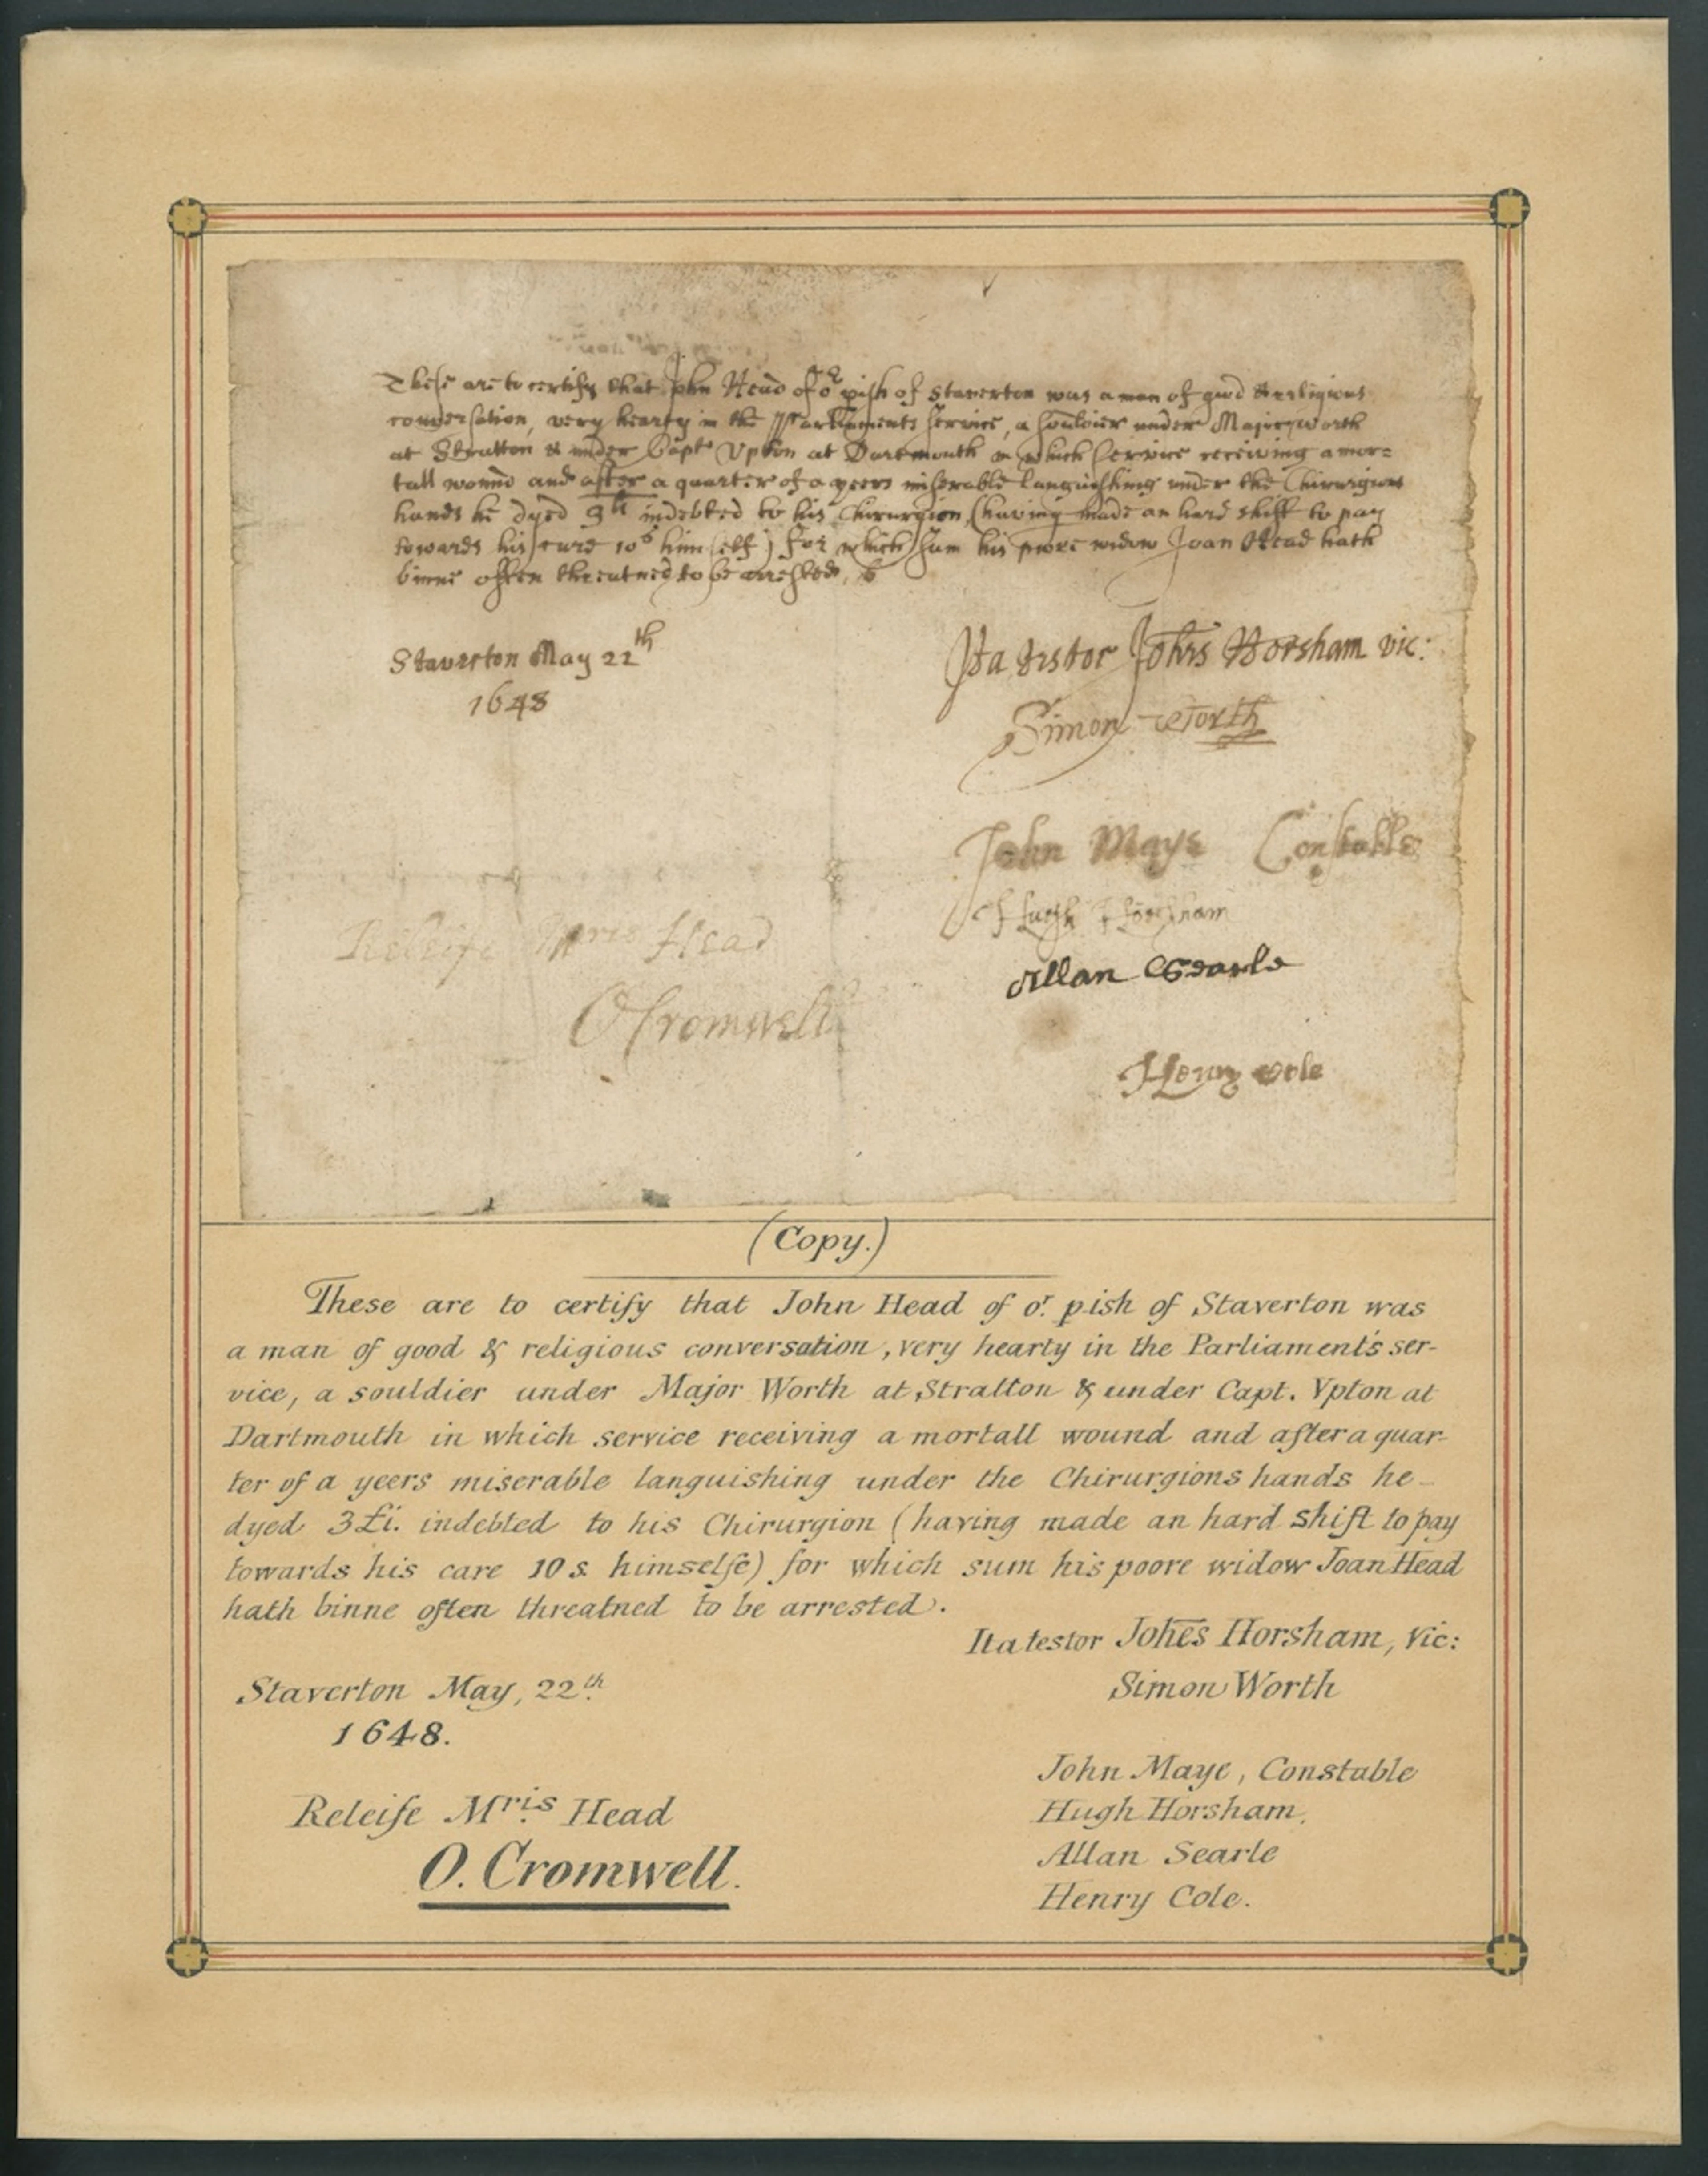 These are to certify that John Head of or pish of Staverton was a man of good & religious
conversation, very hearty in the Parliaments service, a souldier under Major Worth
at Stratton & under Capt Upton at Dartmouth in which service receiving a mor=
tall wound and after a quarter of a yeers miserable languishing under the Chirurgions
hands he dyed 3li indebted to his Chirurgion (having made an hard shift to pay
towards his cure 10s himselfe) for which sum his poore widow Joan Head hath
binne often threatned to be arrested.
Staverton May 22th
1648
Ita testor Johes Horsham vic:
Simon Worth
John Maye Constable
Hugh Horsham
Releife Mris Head
Allan Searle
O Cromwell
Henry Cole
(Copy.)
These are to certify that John Head of or. pish of Staverton was
a man of good & religious conversation, very hearty in the Parliament's ser-
vice, a souldier under Major Worth at Stratton & under Capt. Vpton at
Dartmouth in which service receiving a mortall wound and after a quar-
ter of a yeers miserable languishing under the Chirurgions hands he
dyed 3£i. indebted to his Chirurgion (having made an hard shift to pay
towards his care 10 s. himselfe) for which sum his poore widow Joan Head
hath binne often threatned to be arrested.
Ita testor Johēs Horsham, Vic:
Staverton May, 22th.
Simon Worth
1648.
John Maye, Constable
Releife Mris. Head
Hugh Horsham.
Allan Searle
O. Cromwell.
Henry Cole.